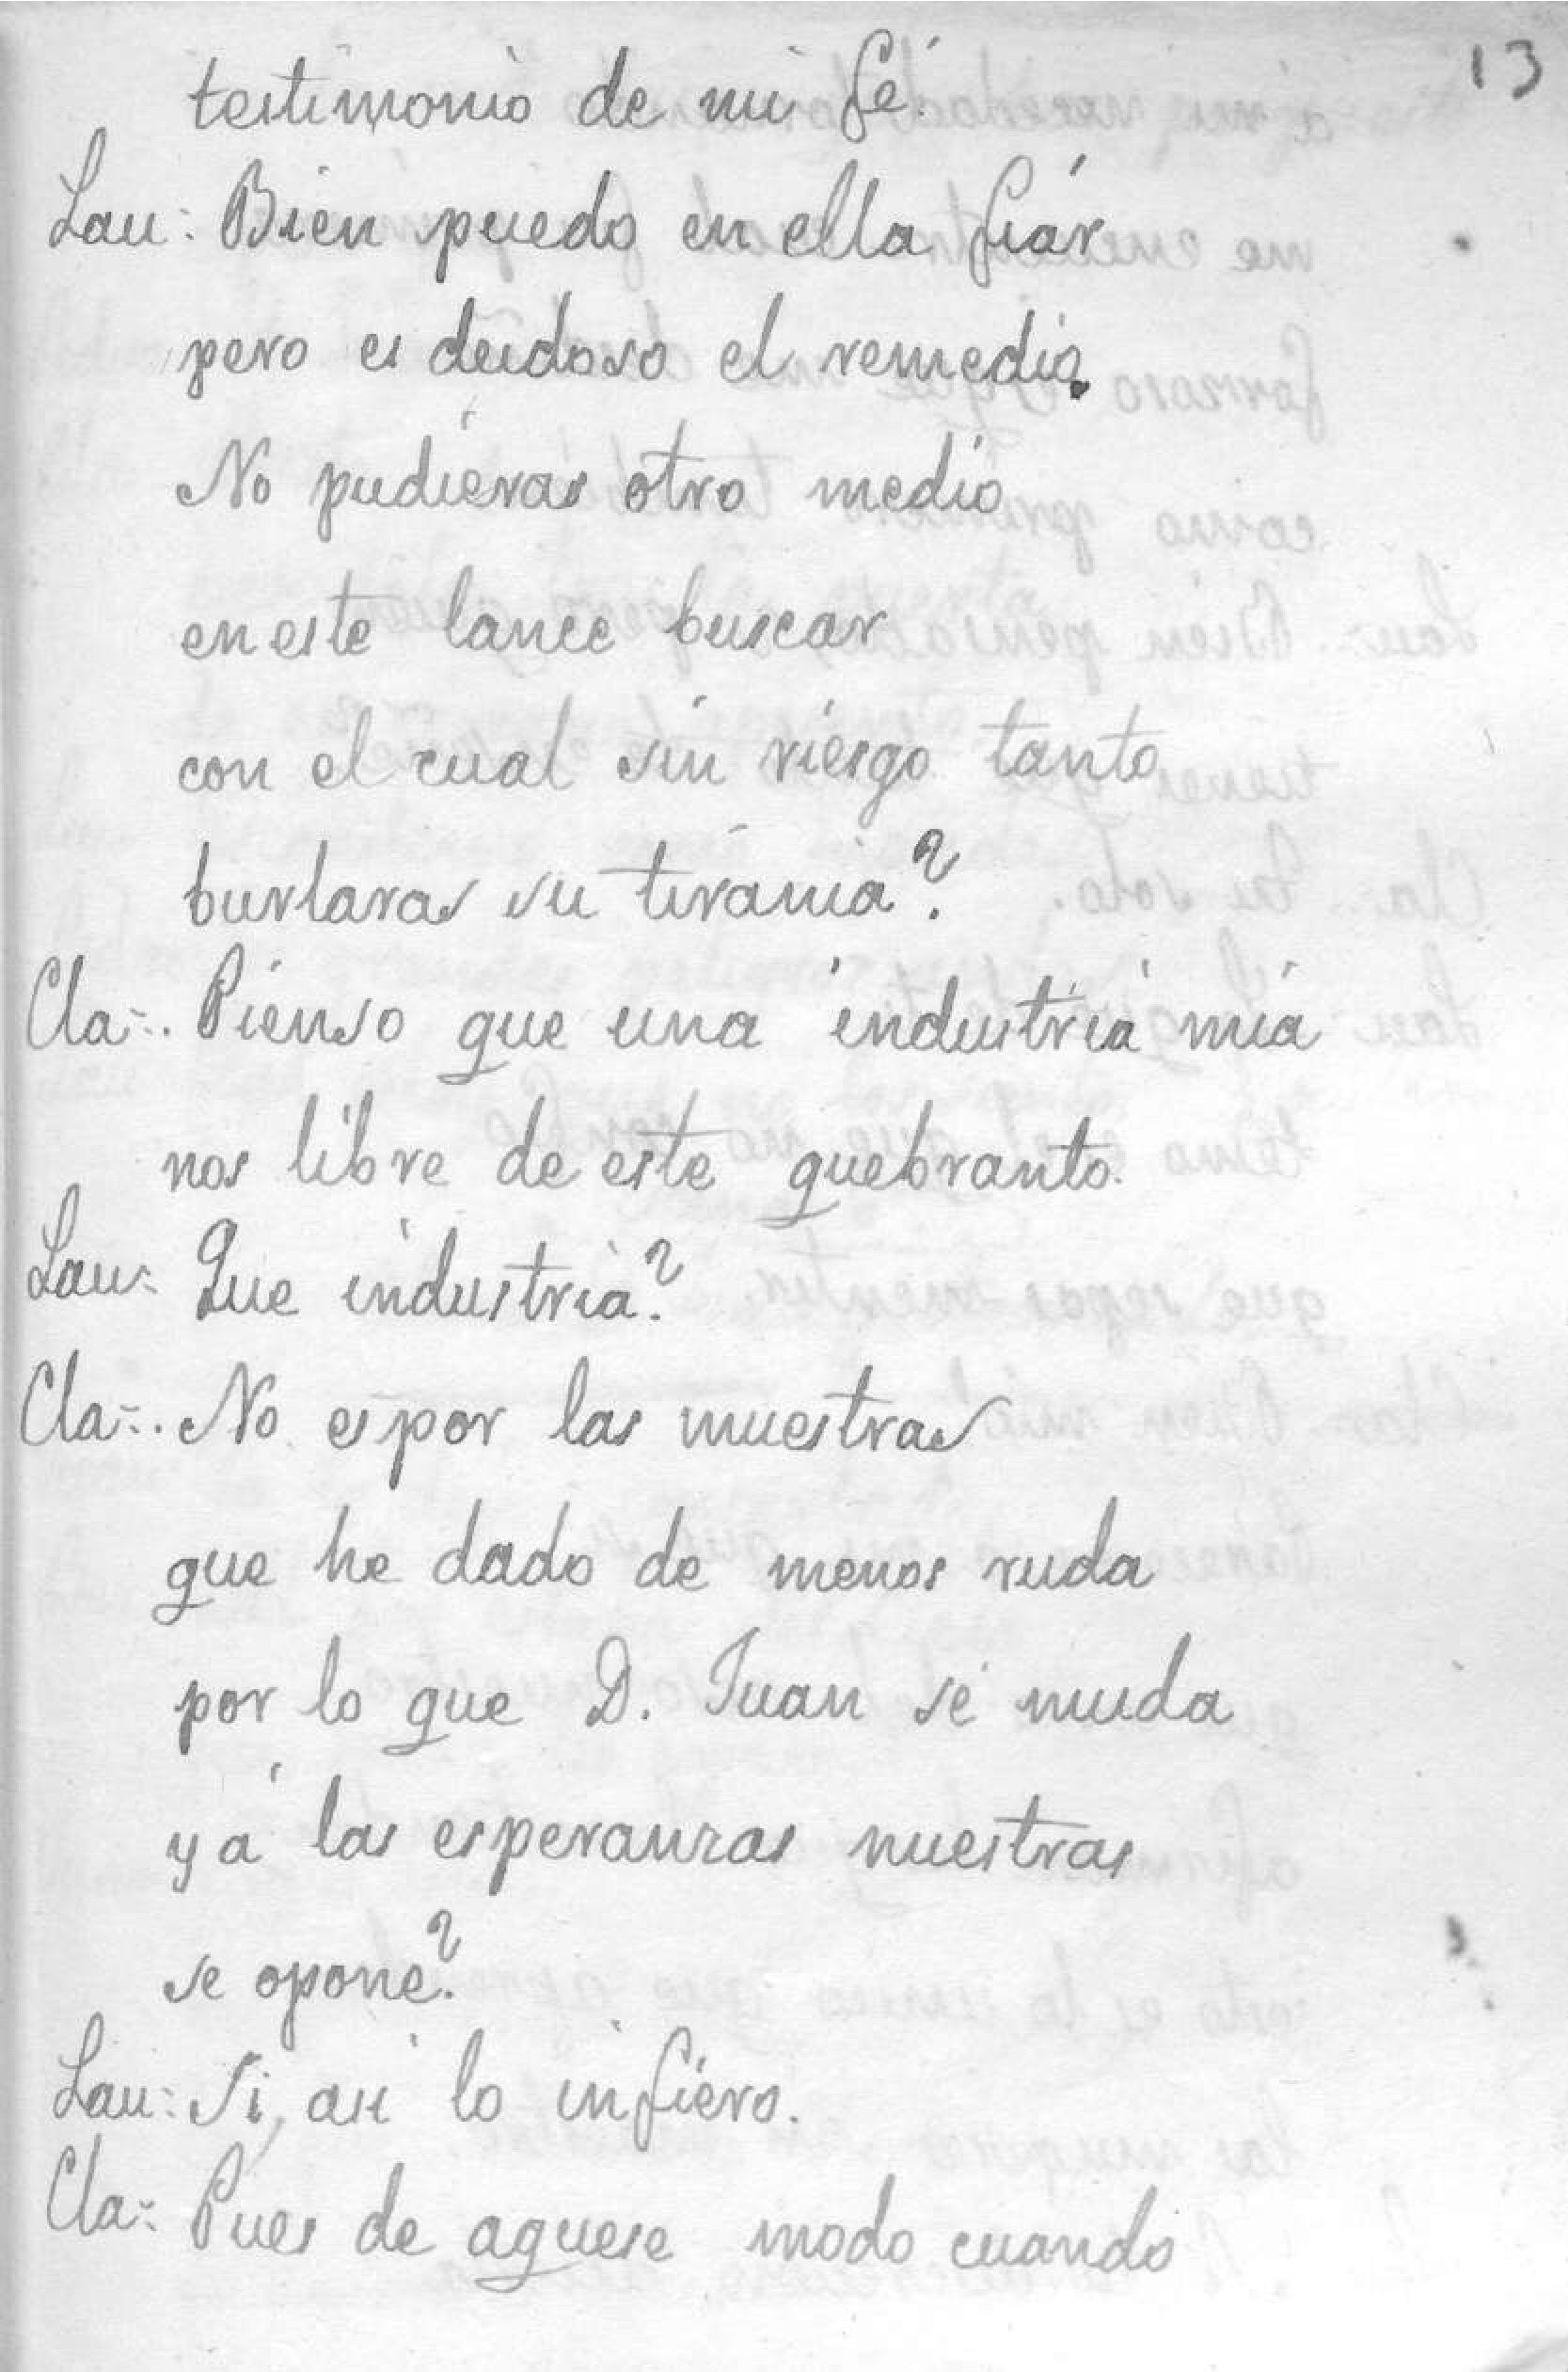 13
testimonio de mi fé.
Lau: Bien puedo en ella fiár
pero es deudoso el remedio.
No pudieras otro medio
en este lance buscar
con el cual sin riesgo tanto
burlaras su tirania?
Cla:. Pienso que una industria mia
nos libre de este quebranto.
Lau: Que industria?
Cla:. No es por las muestras
que he dado de menos ruda
por lo que D. Juan se muda
y á las esperanzas nuestras
se opone?
Lau: Si, asi lo infiero.
Cla: Pues de aquese modo cuando